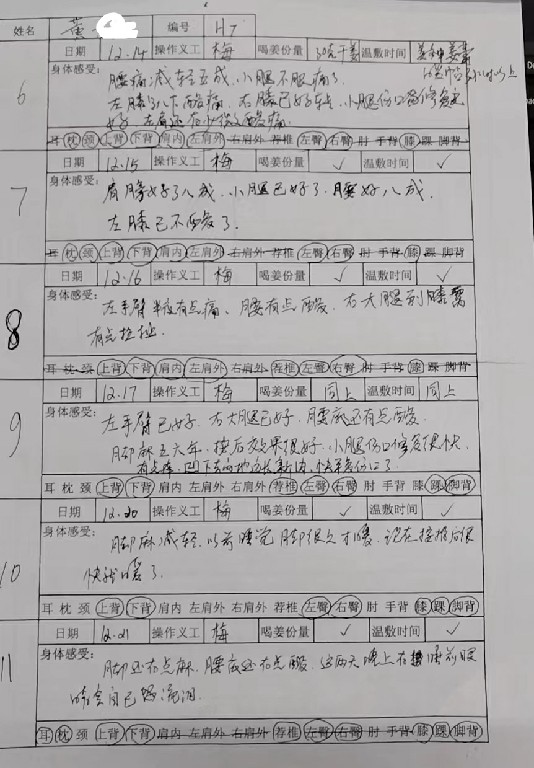 姓名 黄 编号 H7
6
日期 12.14 操作义工 梅 喝姜份量 30克干姜 温敷时间
身体感受:
腰痛减轻五成,小腿不服痛了
左膝 以下酸痛,右膝已好转,小腿伤口
好,左肩还有少许酸痛
耳 枕 颈 上背 下背 肩内 左肩外 右肩外 荐椎 左臀 右臀 肘 手背 膝 踝 脚背
7
日期 12.15 操作义工 梅 喝姜份量 ✓ 温敷时间 ✓
身体感受:
肩膀好了八成,小腿已好了,腰好八成,
左膝已不酸了。
耳 枕 颈 上背 下背 肩内 左肩外 右肩外 荐椎 左臀 右臀 肘 手背 膝 踝 脚背
8
日期 12.16 操作义工 梅 喝姜份量 ✓ 温敷时间 ✓
身体感受:
左手臂 有点痛、腰有点酸,右大腿到膝窝
有点拉扯
耳 枕 颈 上背 下背 肩内 左肩外 右肩外 荐椎 左臀 右臀 肘 手背 膝 踝 脚背
9
日期 12.17 操作义工 梅 喝姜份量 同上 温敷时间 同上
身体感受:
左手臂已好,右大腿已好,腰底还有点酸,
脚麻五六年,按后效果很好,小腿伤口修复很快
有点痒,凹下去的地方长新肉,快平着伤口了.
耳 枕 颈 上背 下背 肩内 左肩外 右肩外 荐椎 左臀 右臀 肘 手背 膝 踝 脚背
10
日期 12.20 操作义工 梅 喝姜份量 ✓ 温敷时间 ✓
身体感受:
脚麻减轻,以前睡觉脚很久才暖,现在按推后很
快就暖了
耳 枕 颈 上背 下背 肩内 左肩外 右肩外 荐椎 左臀 右臀 肘 手背 膝 踝 脚背
11
日期 12.21 操作义工 梅 喝姜份量 ✓ 温敷时间 ✓
身体感受:
脚还有点麻,腰底还有点酸,这两天晚上右 睡前眼
睛会自己 流泪.
耳 枕 颈 上背 下背 肩内 左肩外 右肩外 荐椎 左臀 右臀 肘 手背 膝 踝 脚背